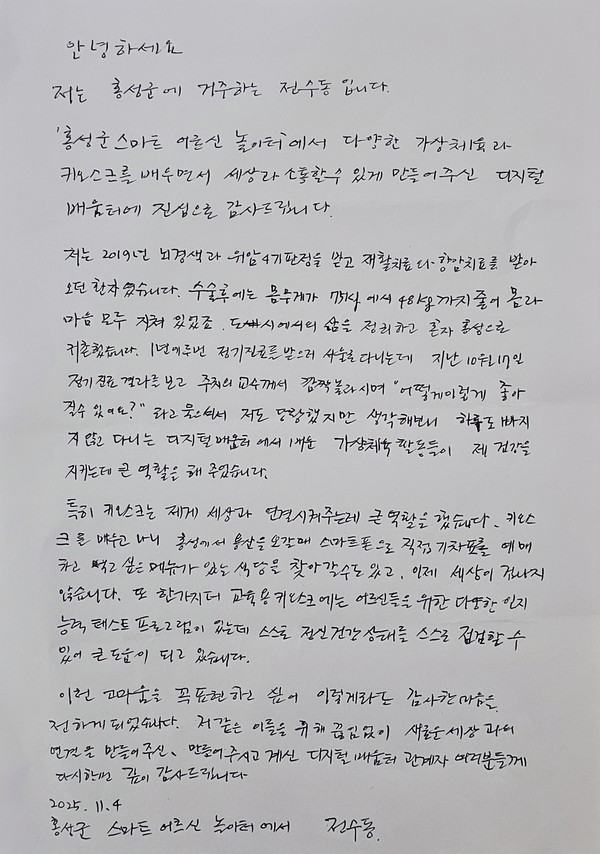 안녕하세요
저는 홍성군에 거주하는 전수동 입니다.
'홍성군 스마트 어르신 놀이터'에서 다양한 가상체육과
키오스크를 배우면서 세상과 소통할수 있게 만들어주신 디지털
배움터에 진심으로 감사드립니다.
저는 2019년 뇌경색과 위암4기판정을 받고 재활치료와 항암치료를 받아
오던 환자였습니다. 수술후에는 몸무게가 75kg에서 48kg까지 줄어 몸과
마음 모두 지쳐 있었죠. 도시에서의 삶을 정리하고 혼자 홍성으로
귀촌했습니다. 1년에 두번 정기진료를 받으러 서울로 다니는데 지난 10월 17일
정기진료 결과를 보고 주치의 교수께서 깜짝 놀라시며 "어떻게 이렇게 좋아
질수 있어요?" 라고 물으셔서 저도 당황했지만 생각해보니 하루도 빠지
지 않고 다니는 디지털 배움터에서 배운 가상체육 활동들이 제 건강을
지키는데 큰 역할을 해 주었습니다.
특히 키오스크는 제게 세상과 연결시켜주는데 큰 역할을 했습니다. 키오스
크를 배우고 나니 홍성에서 용산을 오갈때 스마트폰으로 직접 기차표를 예매
하고 먹고 싶은 메뉴가 있는 식당을 찾아갈수도 있고, 이제 세상이 겁나지
않습니다. 또 한가지더 교육용 키오스크에는 어르신들을 위한 다양한 인지
능력 테스트 프로그램이 있는데 스스로 정신건강 상태를 스스로 점검할 수
있어 큰 도움이 되고 있습니다.
이런 고마움을 꼭 표현하고 싶어 이렇게라도 감사한 마음을
전하게 되었습니다. 저 같은 이들을 위해 끊임없이 새로운 세상과의
연결을 만들어주신, 만들어주시고 계신 디지털 배움터 관계자 여러분들께
다시한번 깊이 감사드립니다
2025. 11. 4
홍성군 스마트 어르신 놀이터에서 전수동.